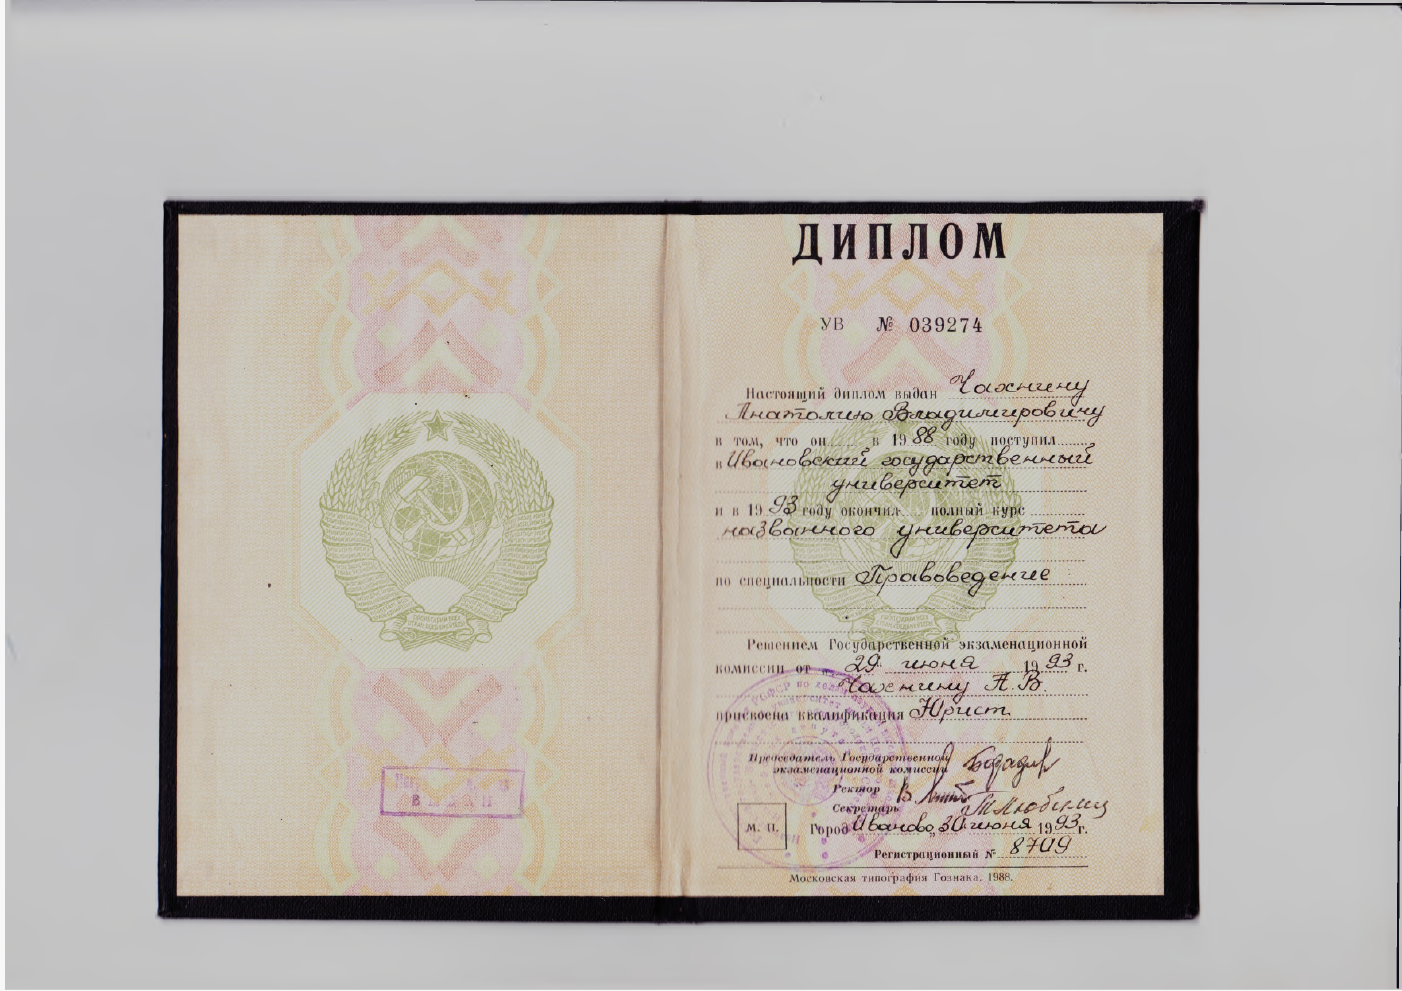 ДИПЛОМ
УВ № 039274
Настоящий диплом выдан Чахнину
Анатолию Владимировичу
в том, что он в 1988 году поступил
в Ивановский государственный
университет
и в 1993 году окончил полный курс
названного университета
по специальности Правоведение
Решением Государственной экзаменационной
комиссии от 29 июня 1993 г.
Чахнину А.В.
присвоена квалификация Юрист
Председатель Государственной
экзаменационной комиссии
Ректор
Секретарь
М. П.
Город Иваново, 30 июня 1993г.
Регистрационный №
Московская типография Гознака. 1988.